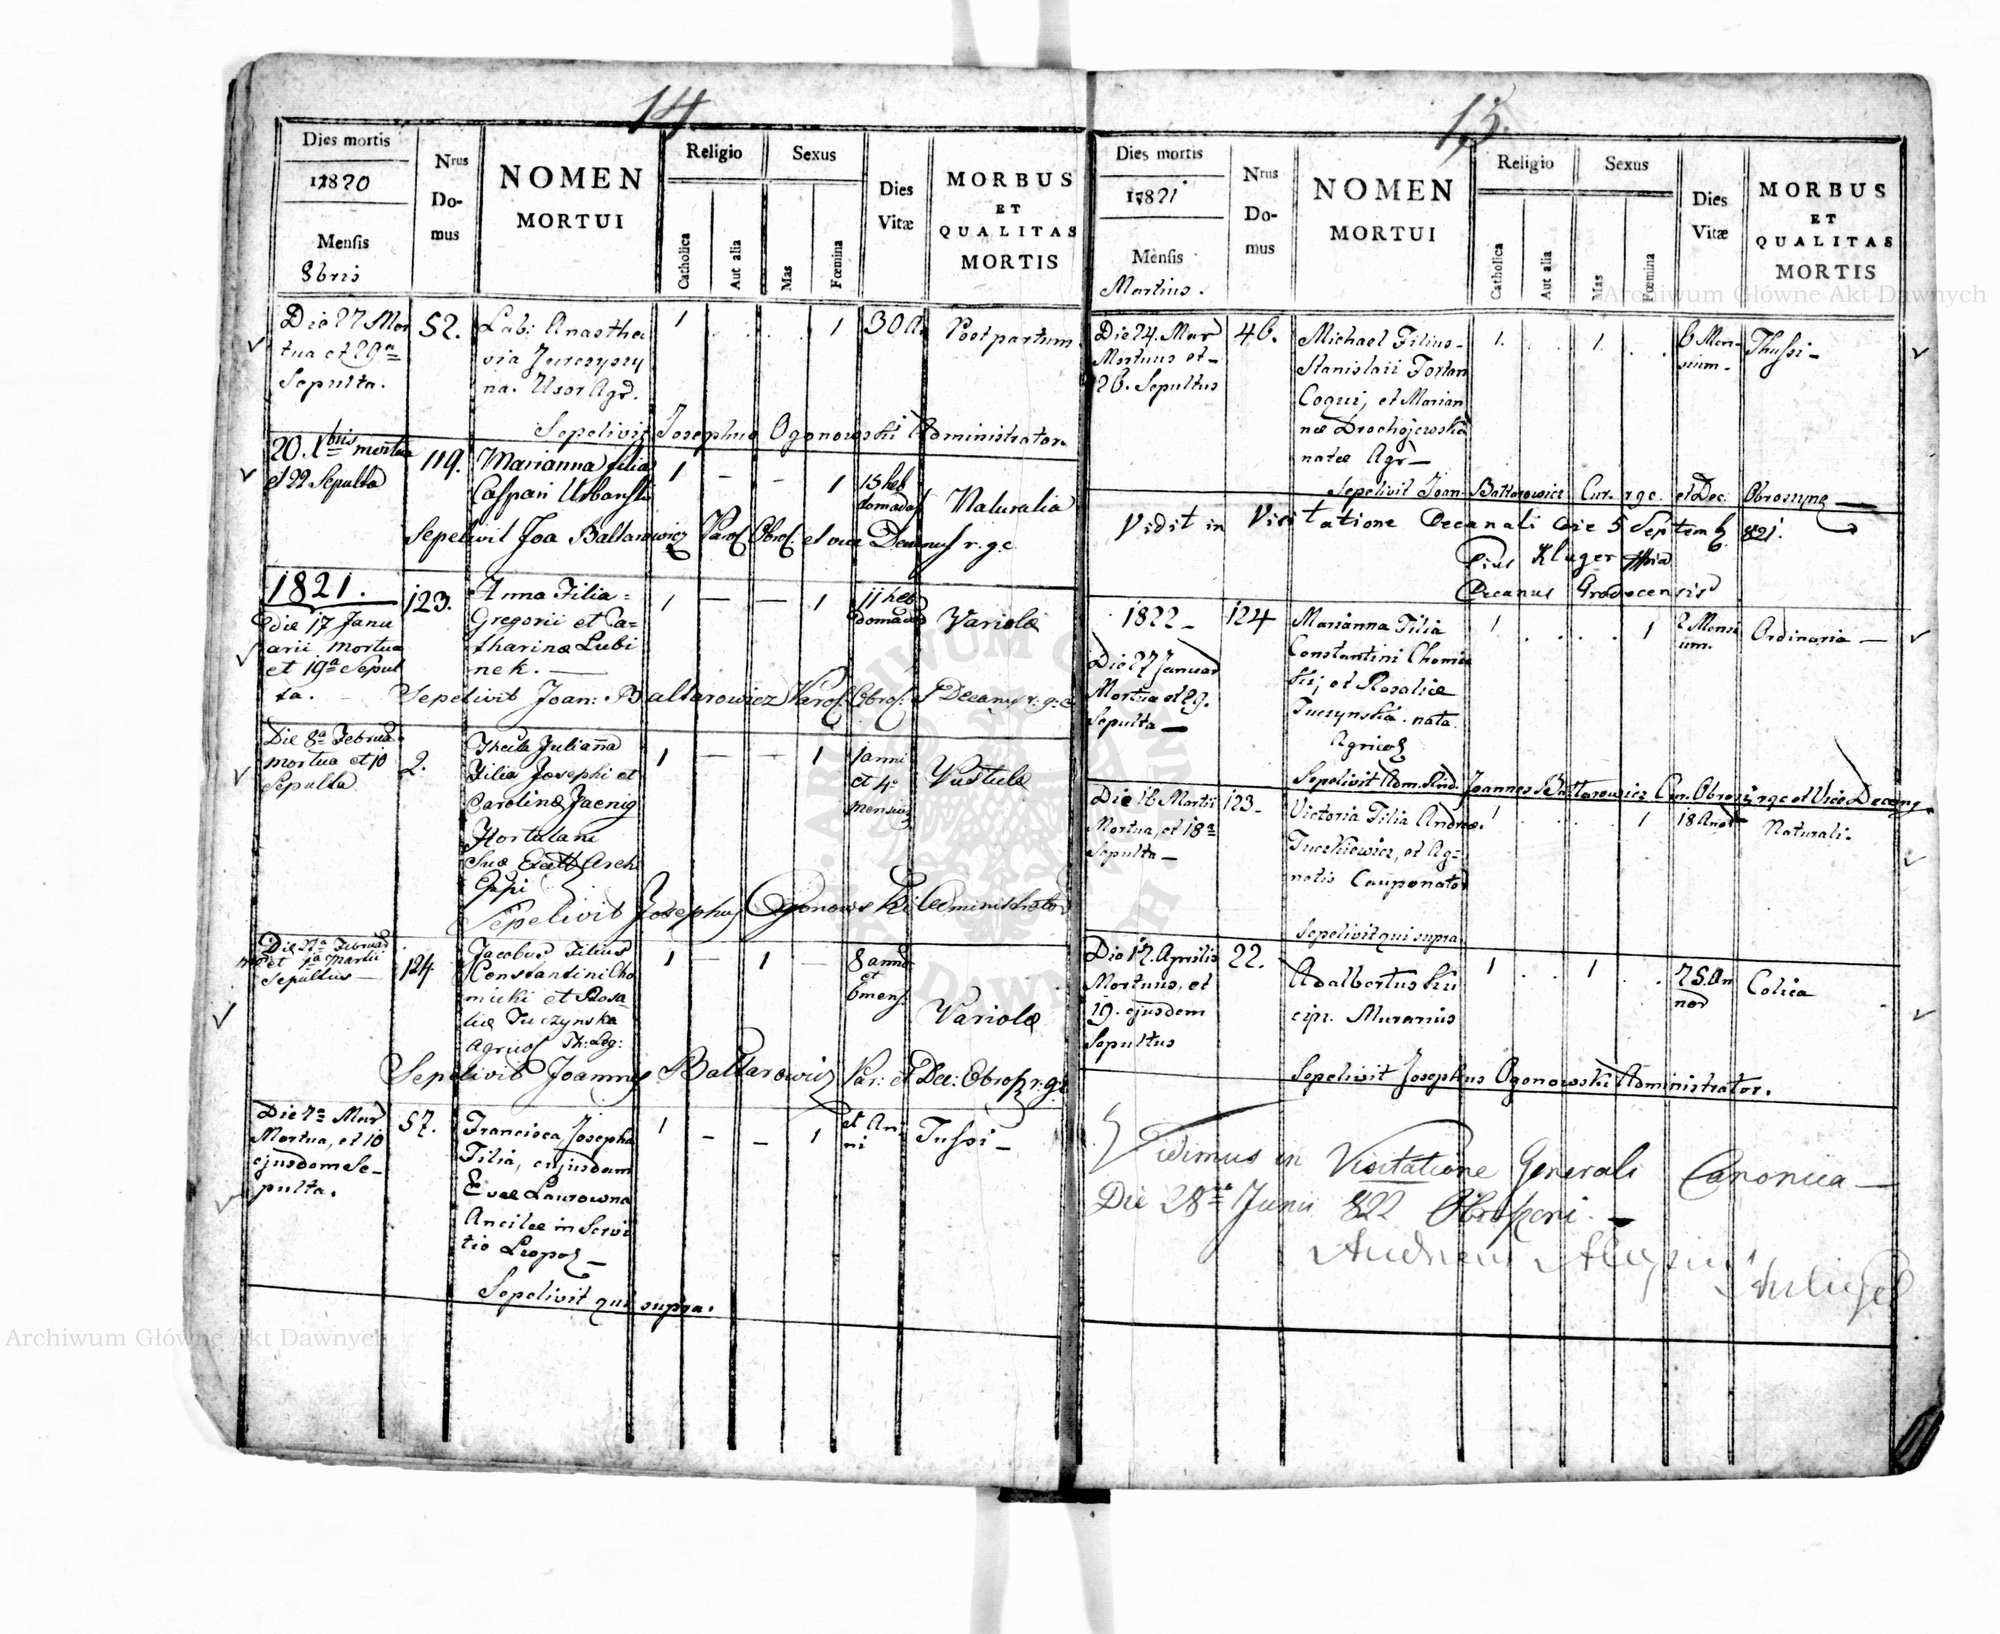 14
Dies mortis
1820
Mensis
8bris
Nrus
Do-
mus
NOMEN
MORTUI
Religio
Catholica
Aut alia
Sexus
Mas
Fœmina
Dies
Vitæ
MORBUS
ET
QUALITAS
MORTIS
Die 27 Mor
tua et 29a
Sepulta.
52.
Lab: Anastha
via Jurczyszy
na. Uxor Agr.
1 . . 1
30 A.
Post partum.
Sepelivit Josephus Ogonowski Administrator.
20. Xbris mortua
et 22 Sepulta
119.
Marianna filia
Caspari Urbański
1 - - 1
15 heb
domadas
Naturalia
Sepelivit Joa Baltarowicz Paro Obros. et vice Decanus r. g. c
1821.
die 17 Janu
arii mortua
et 19a Sepul
ta.
123.
Anna Filia
Gregorii et Ca=
tharinæ Lubi
nek.
1 - - 1
11 heb
domadas
Variolæ
Sepelivit Joan: Baltarowicz Paro. Obros. Decanus r: g: c
Die 8a Februa
mortua et 10
Sepulta
2.
Thecla Julianna
Filia Josephi et
Carolinæ Jaenig
Hortulani
Suæ Arch
Eppi
1 - - 1
1 anni
et 4
mensium
Pustulæ
Sepelivit Josephus Ogonowski Administrator
Die 27a Februa
et 1a Martii
Sepultus
124.
Jacobus Filius
Constantini Cho
micki et Rosa-
liæ Tuczynska
Agricol
1 - 1 -
8 anno
et
6 mens.
Variolæ
Sepelivit Joannes Baltarowicz Par: et Dec: Obros r: g: c
Die 7a Mar
Mortua, et 10
ejusdem Se-
pulta.
57.
Francisca Josepha
Filia, cujusdam
Evæ Laurowna
Ancilæ in Servi
tio Leopol
1 - - 1
Tussi -
Sepelivit qui supra.
15.
Dies mortis
1821
Mensis
Martius.
Nrus
Do-
mus
NOMEN
MORTUI
Religio
Catholica
Aut alia
Sexus
Mas
Fœmina
Dies
Vitæ
MORBUS
ET
QUALITAS
MORTIS
Die 24. Mar
Mortuus et
26. Sepultus
46.
Michael Filius
Stanislaii
Coqui, et Marian
næ Drochojewska
natæ Agr
1. . 1. .
6 Men-
sium.
Thussi -
Sepelivit Joan Baltarowicz Cur. r g c. et Dec: Obrosyne
Vidit in Visitatione Decanali die 5 Septemb. 821.
Pius Kluger
Decanus Grodecensis
1822
Die 27 Januar
Mortua et 29.
Sepulta
124
Marianna Filia
Constantini Chomic
ki, et Rosaliæ
Tuczynska. nata
Agricol
1 . . 1
2 Mensi
um.
Ordinaria
Sepelivit Adm. Rnd. Joannes Baltarowicz Cur. Obros. r g c et Vice Decang.
Die 16 Martii
Mortua, et 18a
Sepulta
123
Victoria Filia Andreæ
Tuczkiewicz, et Ag=
netis Cauponator
1 . . 1
18 Anor
Naturali.
Sepelivit qui supra
Die 17. Aprilis
Mortuus, et
19. ejusdem
Sepultus
22.
Adalbertus Ku
cip. Murarius
1 . 1 .
75. An
nor
Colica
Sepelivit Josephus Ogonowski Administrator.
Vidimus in Visitatione Generali Canonica
Die 28a Junii 822 Obroszeni.
Archiwum Główne Akt Dawnych
Archiwum Główne Akt Dawnych